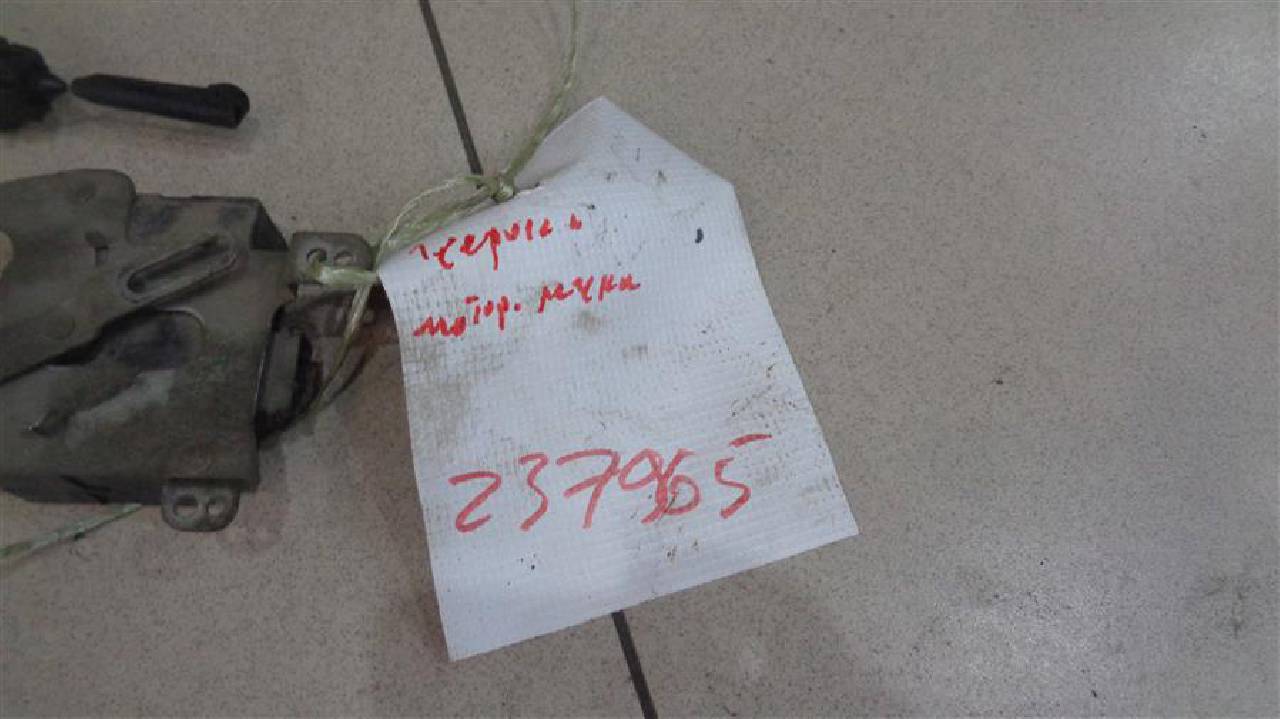 чероки
мотор. печки
237965